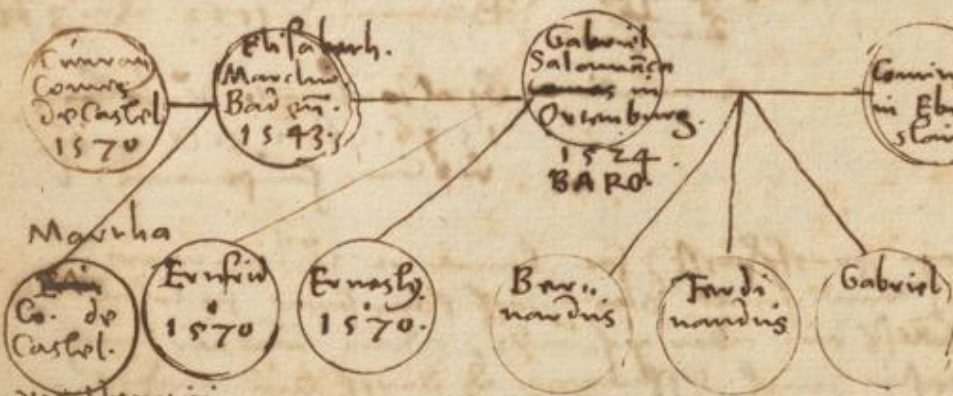 Comes
de Castel
1570
Elisabeth.
Marchio
Baden.
1543.
Gabriel
Salamãca
Comes in
Ortenburg.
1524.
BARO.
in
Martha
Co. de
Castel.
Ernfrid
1570
Ernestꝰ.
1570.
Ber=
nardus
Ferdi
nandus
Gabriel